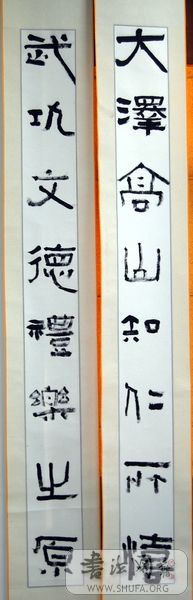 大澤高山知仁所憙
武功文德禮樂之原
書法网
WWW.SHUFA.ORG